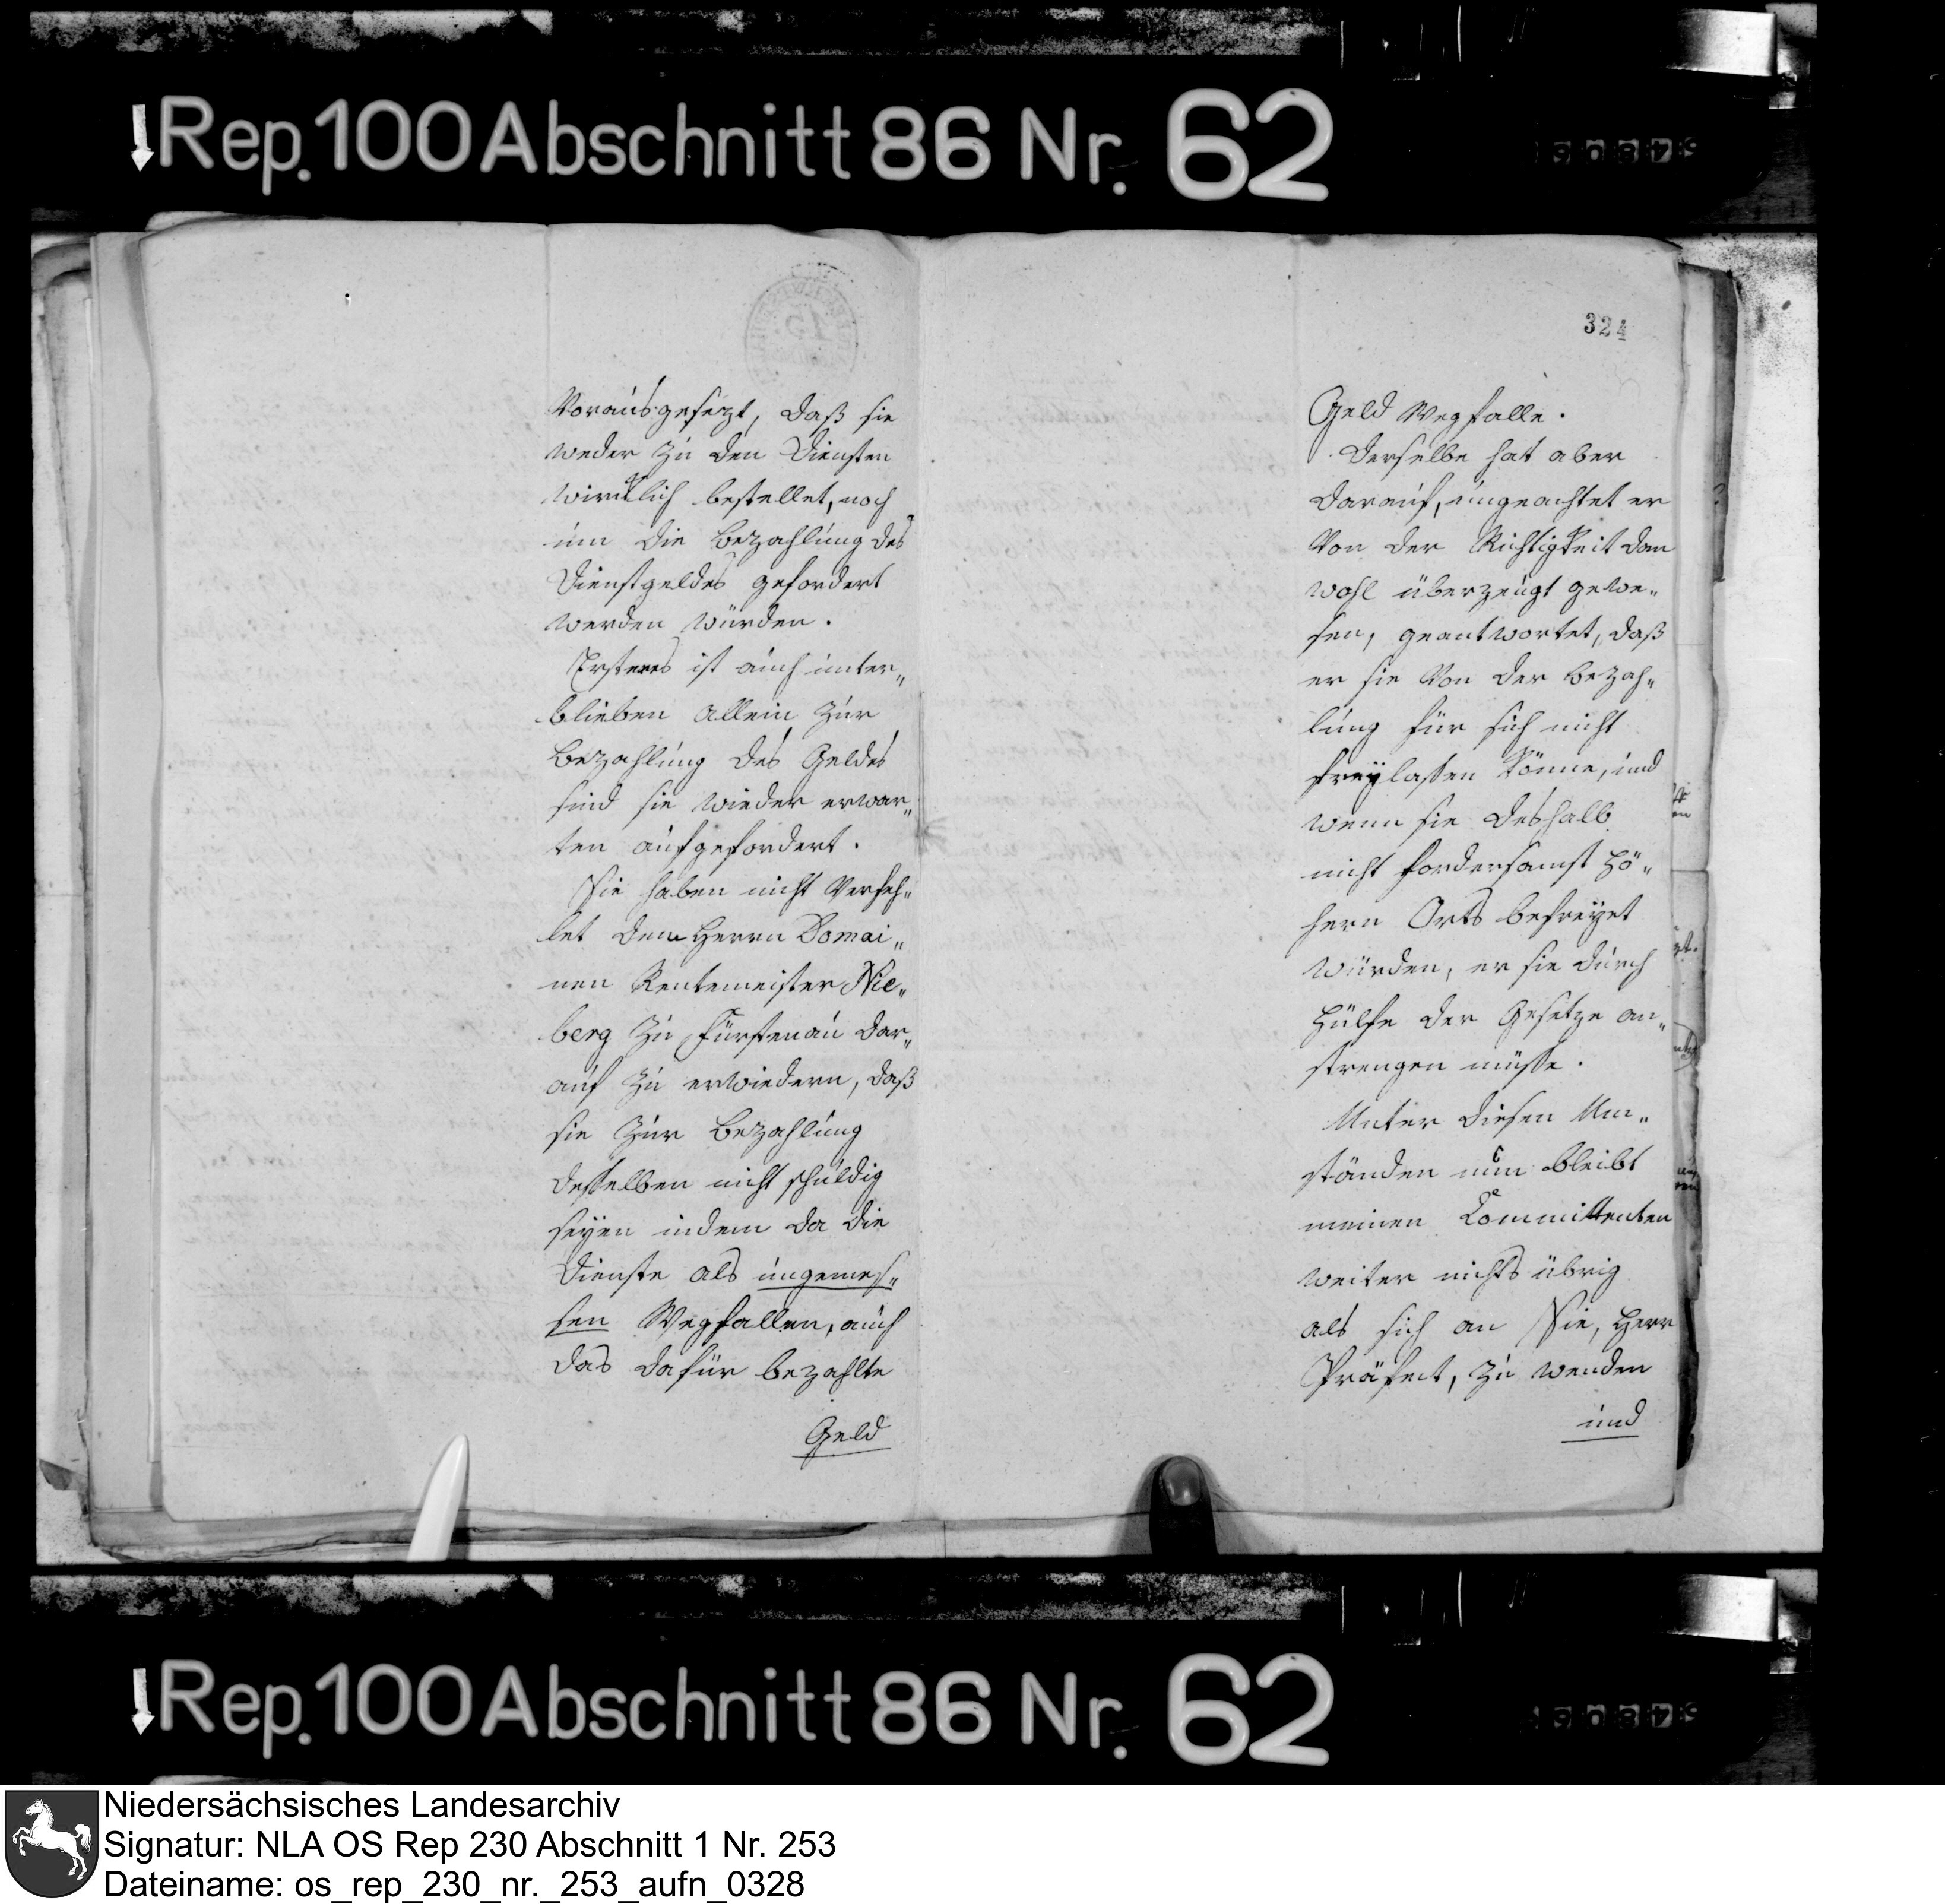 Rep. 100 Abschnitt 86 Nr. 62
324
Vorausgesezt, daß sie
weder zu den Diensten
wircklich bestellet, noch
um die Bezahlung des
Dienstgeldes gefordert
werden würden.
Ersteres ist auch unter„
blieben allein zur
Bezahlung des Geldes
sind sie wieder erwar„
ten aufgefordert.
Sie haben nicht Verfeh„
let dem Herrn Domai„
nen Rentemeister Nie„
berg zu Fürstenau dar„
auf zu erwiedern, daß
sie zur Bezahlung
desselben nicht schuldig
seyen indem da die
Dienste als ungemes„
sen Wegfallen, auch
das dafür bezahlte
Geld
Geld Wegfalle.
Derselbe hat aber
darauf, ungeachtet er
Von der Richtigkeit
wohl überzeugt gewe„
sen, geantwortet, daß
er sie Von der Bezah„
lung für sich nicht
freylassen könne, und
wenn sie deshalb
nicht fordersamst hö„
hern Orts befreyet
würden, er sie durch
Hülfe der Gesetze an„
strengen müsse.
Unter diesen Um„
ständen nun bleibt
meinen Committenten
weiter nichts übrig
als sich an Sie, Herr
Präfect, zu wenden
und
Rep. 100 Abschnitt 86 Nr. 62
Niedersächsisches Landesarchiv
Signatur: NLA OS Rep 230 Abschnitt 1 Nr. 253
Dateiname: os_rep_230_nr._253_aufn_0328